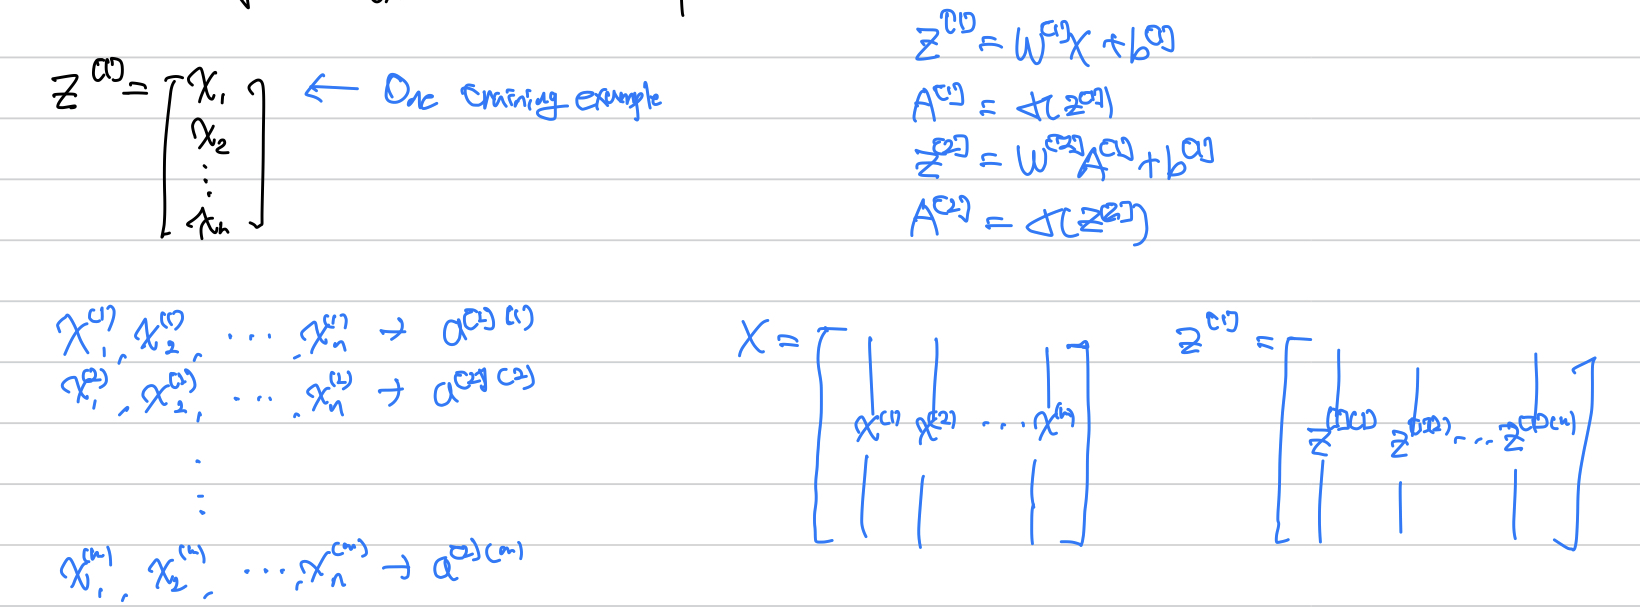 Z^(1) = [x_1 x_2 ⋮ x_n] ← One training example
Z^[1] = W^[1]X + b^[1]
A^[1] = σ(z^[1])
Z^[2] = W^[2]A^[1] + b^[1]
A^[2] = σ(Z^[2])
x_1^(1), x_2^(1), ... , x_n^(1) → a^[2](1)
x_1^(2), x_2^(2), ... , x_n^(2) → a^[2](2)
⋮
x_1^(m), x_2^(m), ... , x_n^(m) → a^[2](m)
X = [x^(1) x^(2) ... x^(m)]
z^[1] = [z^[1](1) z^[1](2) ... z^[1](m)]